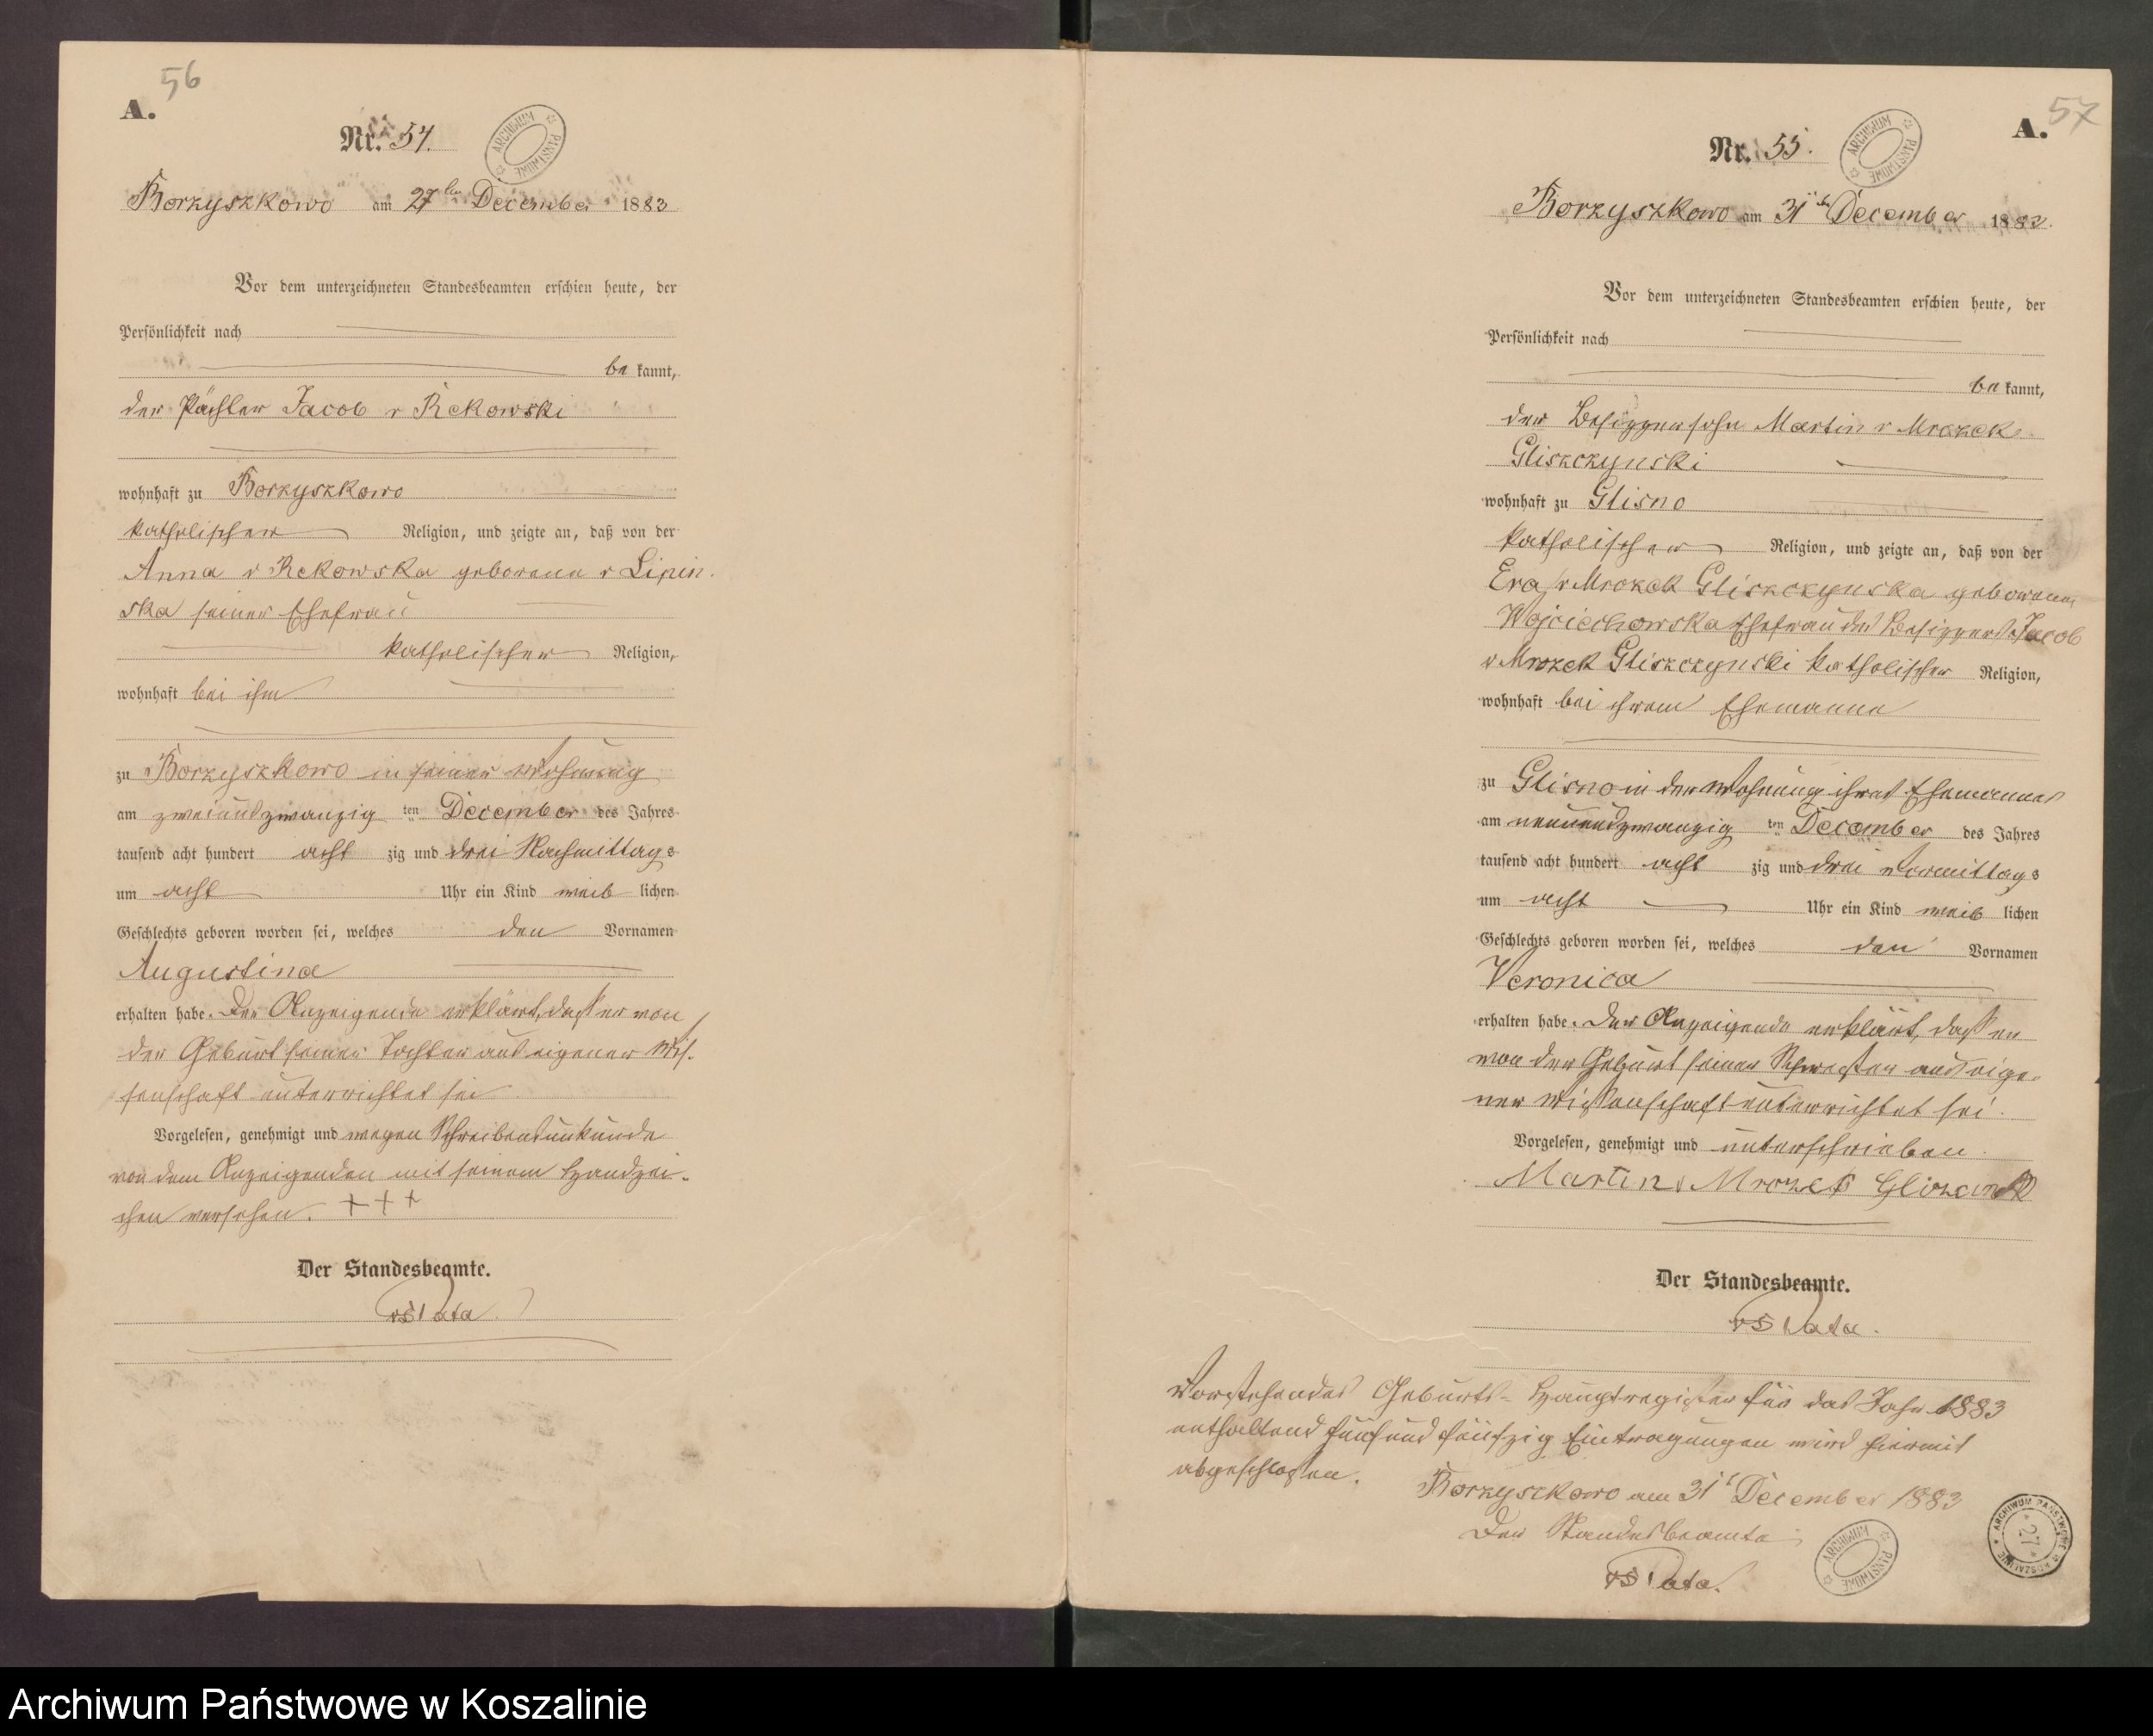 56
A.
Nr. 54.
ARCHIWUM PAŃSTWOWE
Borzyszkowo am 27ten December 1883
Vor dem unterzeichneten Standesbeamten erschien heute, der
Persönlichkeit nach
be kannt,
der Pächter Jacob v Rekowski
wohnhaft zu Borzyszkowo
katholischer Religion, und zeigte an, daß von der
Anna v Rekowska geborene v Lipin
ska seiner Ehefrau
katholischer Religion,
wohnhaft bei ihm
zu Borzyszkowo in seiner Wohnung
am zweiundzwanzig ten December des Jahres
tausend acht hundert acht zig und drei Nachmittags
um acht Uhr ein Kind weib lichen
Geschlechts geboren worden sei, welches den Vornamen
Augustina
erhalten habe. Der Anzeigende erklärt, daß er von
der Geburt seiner Tochter aus eigener Wis-
senschaft unterrichtet sei
Vorgelesen, genehmigt und wegen Schreibensunkunde
von dem Anzeigenden mit seinem Handzei-
chen versehen. +++
Der Standesbeamte.
57
A.
Nr. 55.
ARCHIWUM PAŃSTWOWE
Borzyszkowo am 31ten December 1883.
Vor dem unterzeichneten Standesbeamten erschien heute, der
Persönlichkeit nach
be kannt,
der Besitzersohn Martin v Mrozek
Gliszczynski
wohnhaft zu Glisno
katholischer Religion, und zeigte an, daß von der
Eva v Mrozek Gliszczynska geborene
Wojciechowska Ehefrau des Besitzers Jacob
v Mrozek Gliszczynski katholischer Religion,
wohnhaft bei ihrem Ehemanne
zu Glisno in der Wohnung ihres Ehemannes
am neunundzwanzig ten December des Jahres
tausend acht hundert acht zig und drei Vormittags
um acht Uhr ein Kind weib lichen
Geschlechts geboren worden sei, welches den Vornamen
Veronica
erhalten habe. Der Anzeigende erklärt, daß er
von der Geburt seiner Schwester aus eige-
ner Wissenschaft unterrichtet sei.
Vorgelesen, genehmigt und unterschrieben.
Martin Mrozek
Der Standesbeamte.
Vorstehendes Geburts-Hauptregister für das Jahr 1883
enthaltend fünf und fünfzig Eintragungen wird hiermit
abgeschlossen. Borzyszkowo am 31t December 1883
Der Standesbeamte
ARCHIWUM PAŃSTWOWE
ARCHIWUM PAŃSTWOWE W KOSZALINIE 27
Archiwum Państwowe w Koszalinie